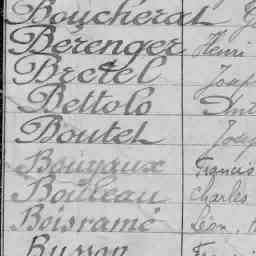 Boucherat
Bérenger Henri
Bretel Josep
Bettolo Ant
Boutel Josep
Bouyaux Francis
Boileau Charles
Boisramé Léon,
Busson